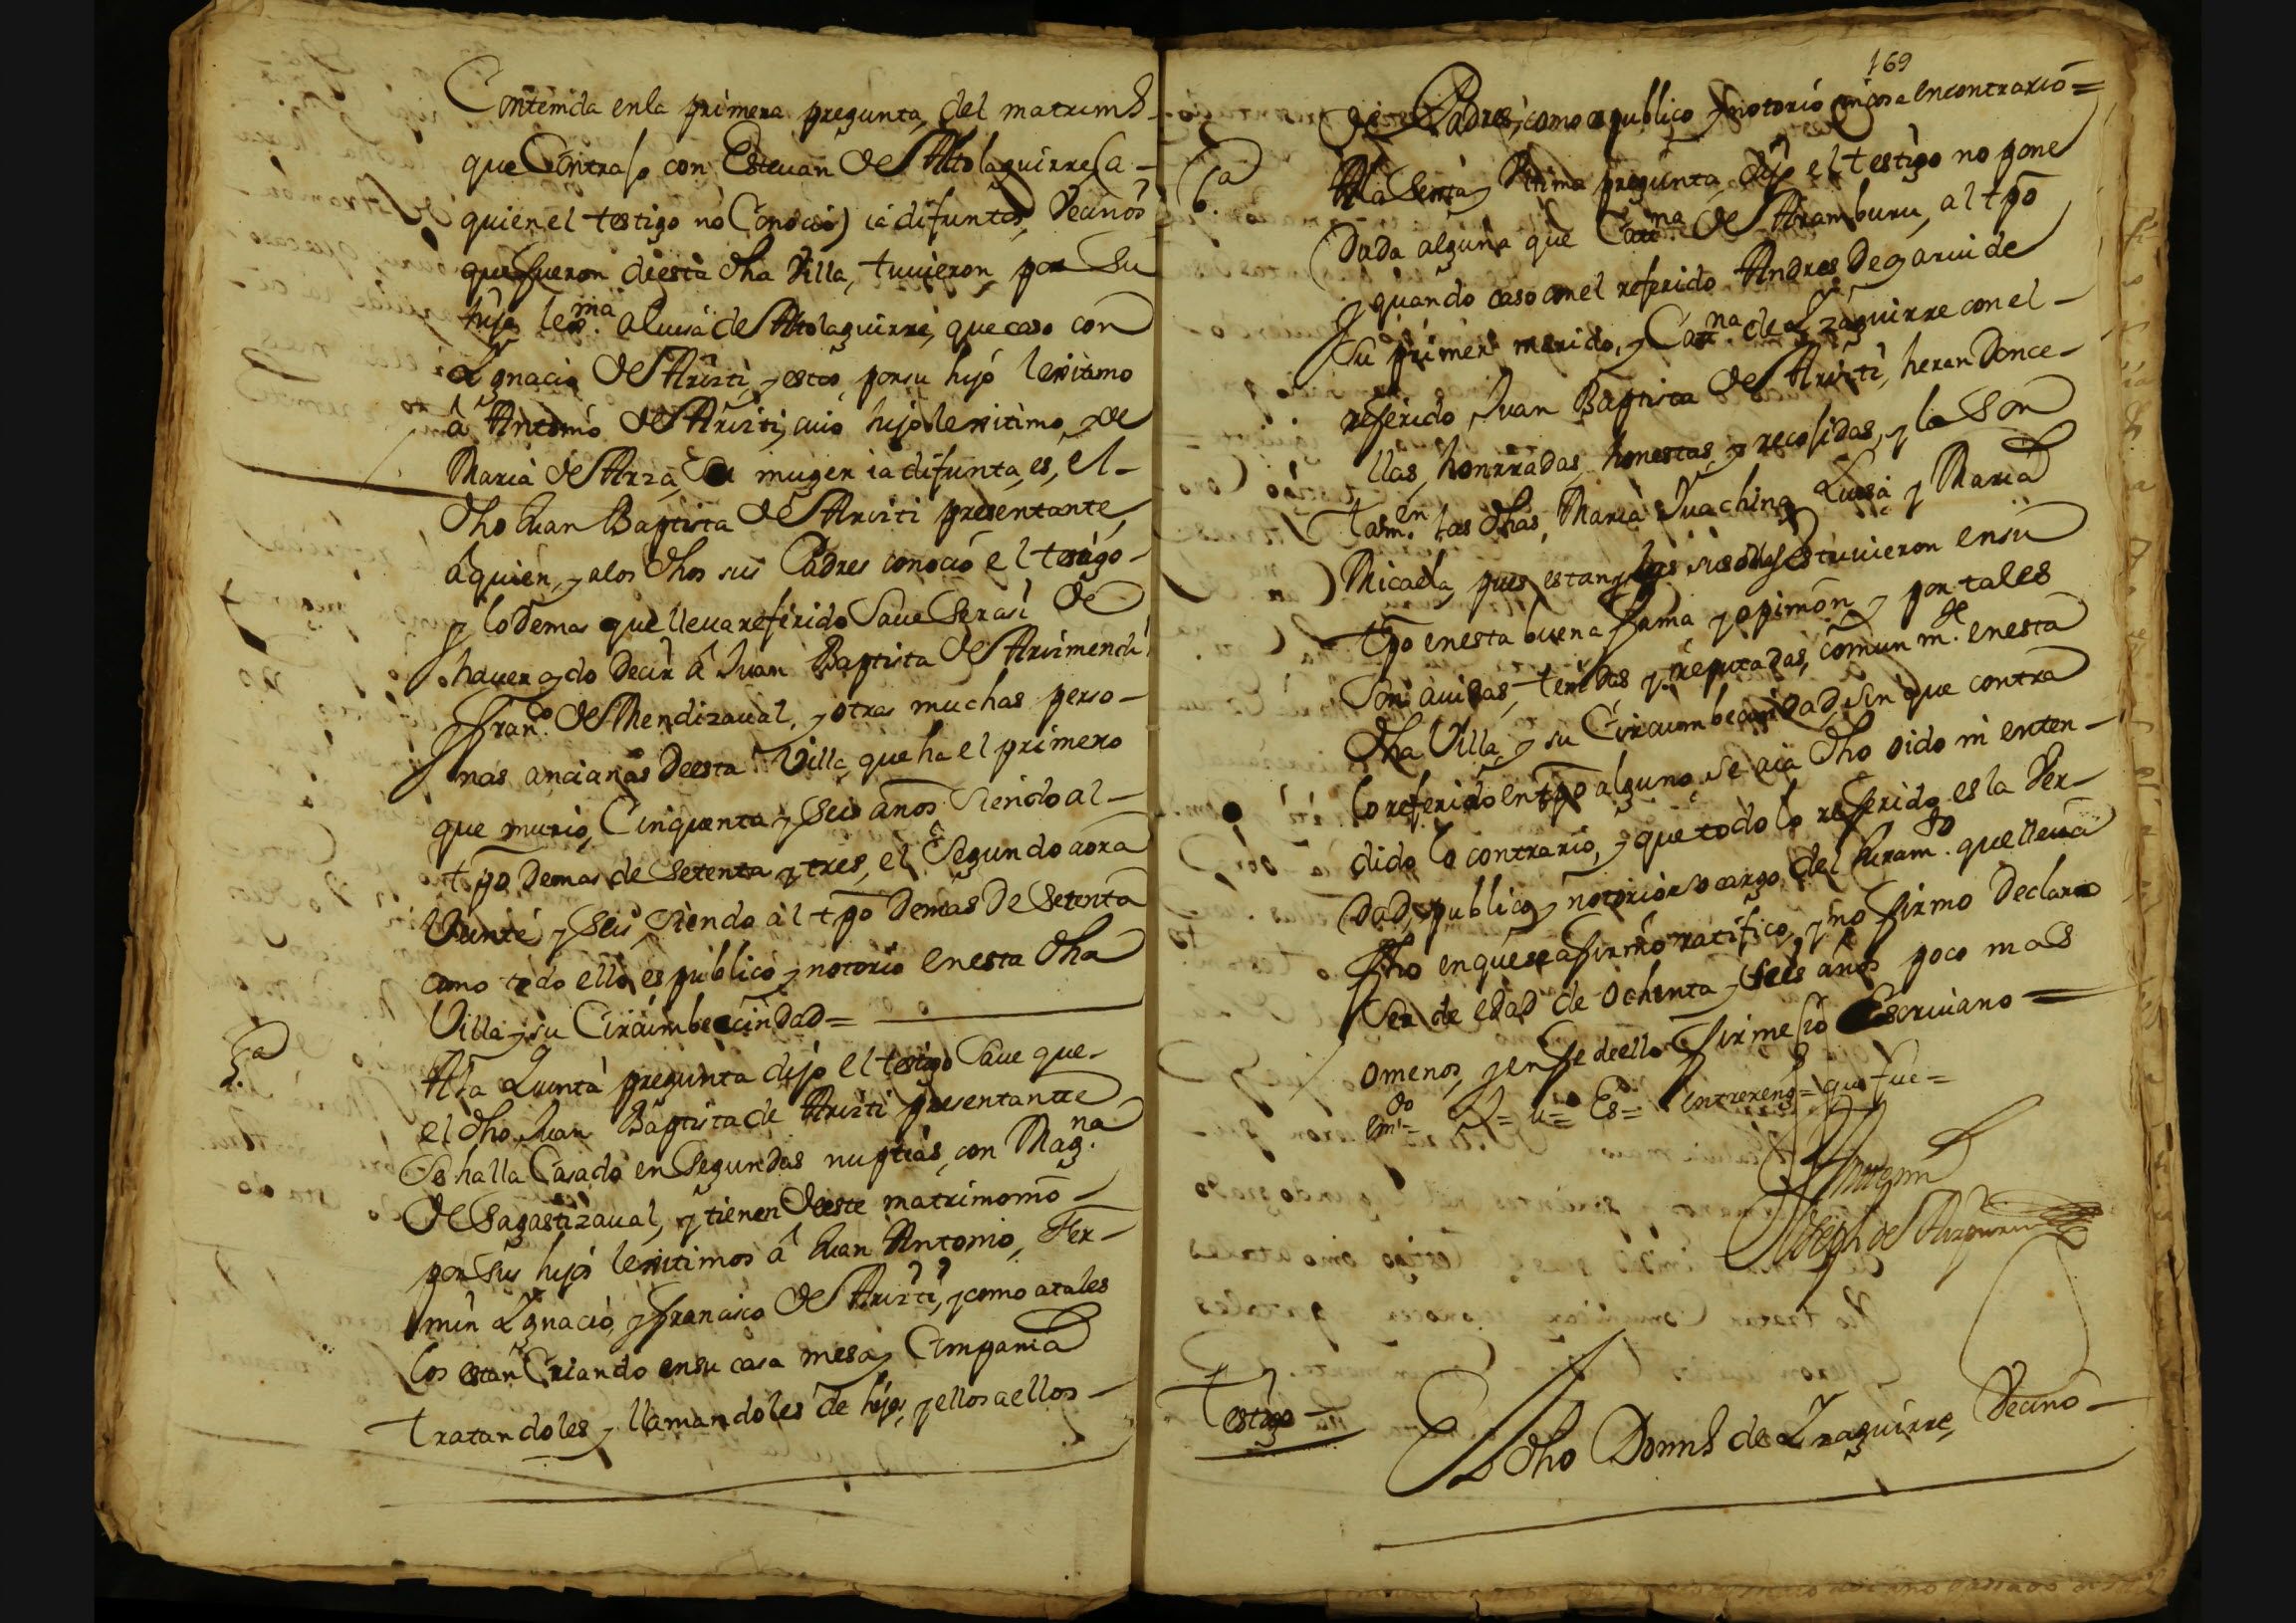 Contenida en la primera pregunta, del matrim.º
que Contrajo con Estevan de Altolaguirre (a
quien el testigo no Conoció) ia difuntos, Vecinos
que fueron de esta dha Villa, tuvieron por su
hija lex.ma a Luisa de Altolaguirre, que caso con
Ygnacio de Aristi, y estos por su hijo lexitimo
â Antonio de Aristi, cuio hijo lexitimo, y de
Maria de Arza, su muger ia difunta, es, el
dho Juan Baptista de Aristi presentante,
â quien, y a los dhos sus Padres conoció el testigo
y lo demas que lleva referido Save Ser asi de
haver oydo decir â Juan Baptista de Arismendi
y Fran.co de Mendizaval, y otras muchas perso-
nas ancianas de esta Villa, que ha el primero
que murio, Cinquenta y Seis años Siendo al
tpo demas de Setenta y tres, el Segundo aora
Veinte y Seis, Siendo al tpo demas de Setenta
como todo ello es publico y notorio en esta dha
Villa y su Circumbecindad =
5.a
A la Quinta pregunta dijo el testigo Save que
el dho Juan Baptista de Aristi presentante
Se halla Casado en Segundas nuptias, con Mag.na
de Sagastizaval, y tienen de este matrimonio
por sus hijos lexitimos â Juan Antonio, Fer-
min Ygnacio, y Francisco de Aristi, y como a tales
los estan Criando en su casa mesa y Compania
tratandoles y llamandoles de hijos, y ellos a ellos
169
de Padres, como es publico y notorio sin cosa en contrario =
6.a
A la Sexta y Ultima pregunta, dijo el testigo no pone
Duda alguna que Cat.na de Aramburu, al tpo
y quando caso con el referido Andres de garvide
Su primer marido, y Cat.na de Yzaguirre con el
referido Juan Baptista de Aristi, heran Donce-
llas, honrradas, honestas, y recojidas, y lo Son
tam.en las dhas, Maria Juachina, Luisa y Maria
Micaela, pues estan y las susodhas estuvieron en su
tpo en esta buena fama y opinion, y por tales
Son avidas, tenidas y reputadas, comun m.te en esta
dha Villa, y su Circumbecindad, sin que contra
lo referido en tpo alguno, se aia dho oido ni enten-
dido lo contrario, y que todo lo referido es la Ver-
dad, publico y notorio so cargo del Juram.to que lleva
fho en que se afirmó ratifico, y no firmo Declaro
Ser de edad de ochenta y seis años poco mas
o menos, y en fe de ello firme Yo el Escrivano =
em.do = = u = Es = entrereng.s = que fue =
Ante mi
Joseph de Aizpuru
Testigo
El dho Dom.º de Yraguirre, Vecino